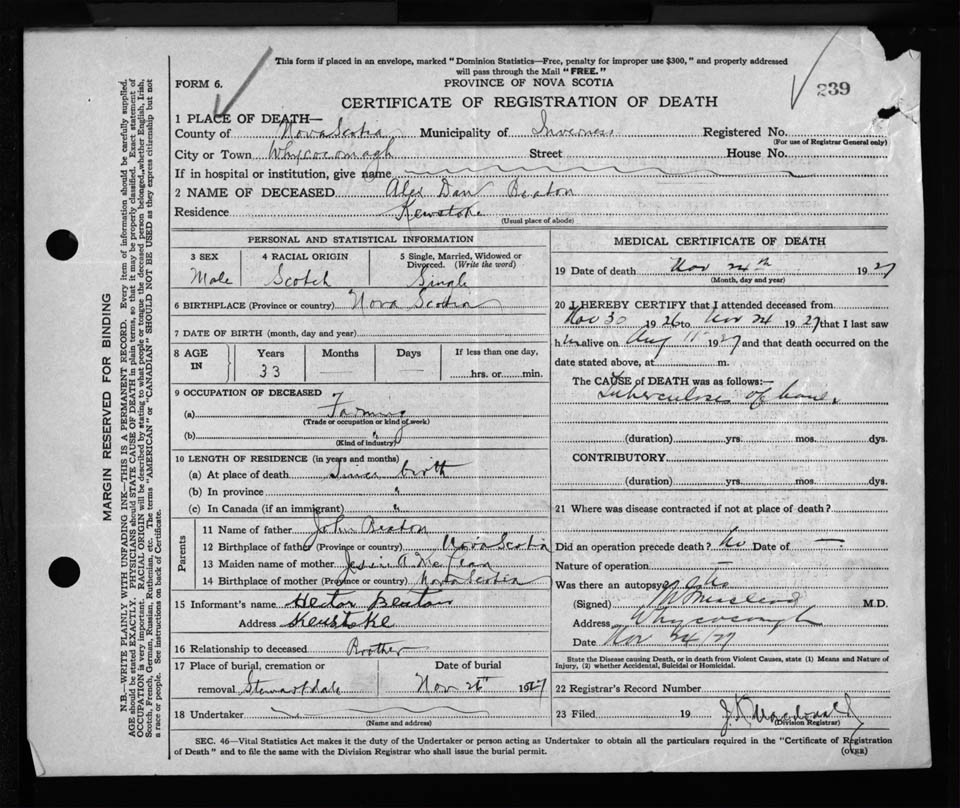 This form if placed in an envelope, marked "Dominion Statistics—Free, penalty for improper use $300," and properly addressed
will pass through the Mail "FREE."
FORM 6.
PROVINCE OF NOVA SCOTIA
239
CERTIFICATE OF REGISTRATION OF DEATH
1 PLACE OF DEATH—
County of Nova Scotia Municipality of Inverness Registered No.
(For use of Registrar General only)
City or Town Whycocomagh Street House No.
If in hospital or institution, give name
2 NAME OF DECEASED Alex Dan Beaton
Residence Kewstoke
(Usual place of abode)
PERSONAL AND STATISTICAL INFORMATION
3 SEX 4 RACIAL ORIGIN 5 Single, Married, Widowed or
Divorced. (Write the word)
Male Scotch Single
6 BIRTHPLACE (Province or country) Nova Scotia
7 DATE OF BIRTH (month, day and year)
8 AGE IN Years Months Days If less than one day,
33 — — hrs. or min.
9 OCCUPATION OF DECEASED
(a) Farming
(Trade or occupation or kind of work)
(b) "
(Kind of industry)
10 LENGTH OF RESIDENCE (in years and months)
(a) At place of death Since birth
(b) In province "
(c) In Canada (if an immigrant) "
Parents
11 Name of father John Beaton
12 Birthplace of father (Province or country) Nova Scotia
13 Maiden name of mother Jessie A McLean
14 Birthplace of mother (Province or country) Nova Scotia
15 Informant's name Hector Beaton
Address Kewstoke
16 Relationship to deceased Brother
17 Place of burial, cremation or Date of burial
removal Stewartdale Nov 26th 1927
18 Undertaker
(Name and address)
MEDICAL CERTIFICATE OF DEATH
19 Date of death Nov 24th 1927
(Month, day and year)
20 I HEREBY CERTIFY that I attended deceased from
Nov 30 1926 to Nov 24 1927 that I last saw
him alive on Aug 11th 1927 and that death occurred on the
date stated above, at m.
The CAUSE of DEATH was as follows:—
Tuberculosis of bone.
(duration) yrs. mos. dys.
CONTRIBUTORY
(duration) yrs. mos. dys.
21 Where was disease contracted if not at place of death?
Did an operation precede death? No Date of —
Nature of operation —
Was there an autopsy?
(Signed) M.D.
Address Whycocomagh
Date Nov 24/27
State the Disease causing Death, or in death from Violent Causes, state (1) Means and Nature of
Injury, (2) whether Accidental, Suicidal or Homicidal.
22 Registrar's Record Number
23 Filed 19 J. K. Macdonald
(Division Registrar)
SEC. 46—Vital Statistics Act makes it the duty of the Undertaker or person acting as Undertaker to obtain all the particulars required in the "Certificate of Registration
of Death" and to file the same with the Division Registrar who shall issue the burial permit.
(OVER)
MARGIN RESERVED FOR BINDING
N.B.—WRITE PLAINLY WITH UNFADING INK—THIS IS A PERMANENT RECORD. Every item of information should be carefully supplied.
AGE should be stated EXACTLY. PHYSICIANS should STATE CAUSE OF DEATH in plain terms, so that it may be properly classified. Exact statement of
OCCUPATION is very important. RACIAL ORIGIN will be described by stating to what people or tongue the deceased person belonged, whether English, Irish,
Scotch, French, German, Russian, Ruthenian, etc. The terms "AMERICAN" or "CANADIAN" SHOULD NOT BE USED as they express citizenship but not
a race or people. See instructions on back of Certificate.